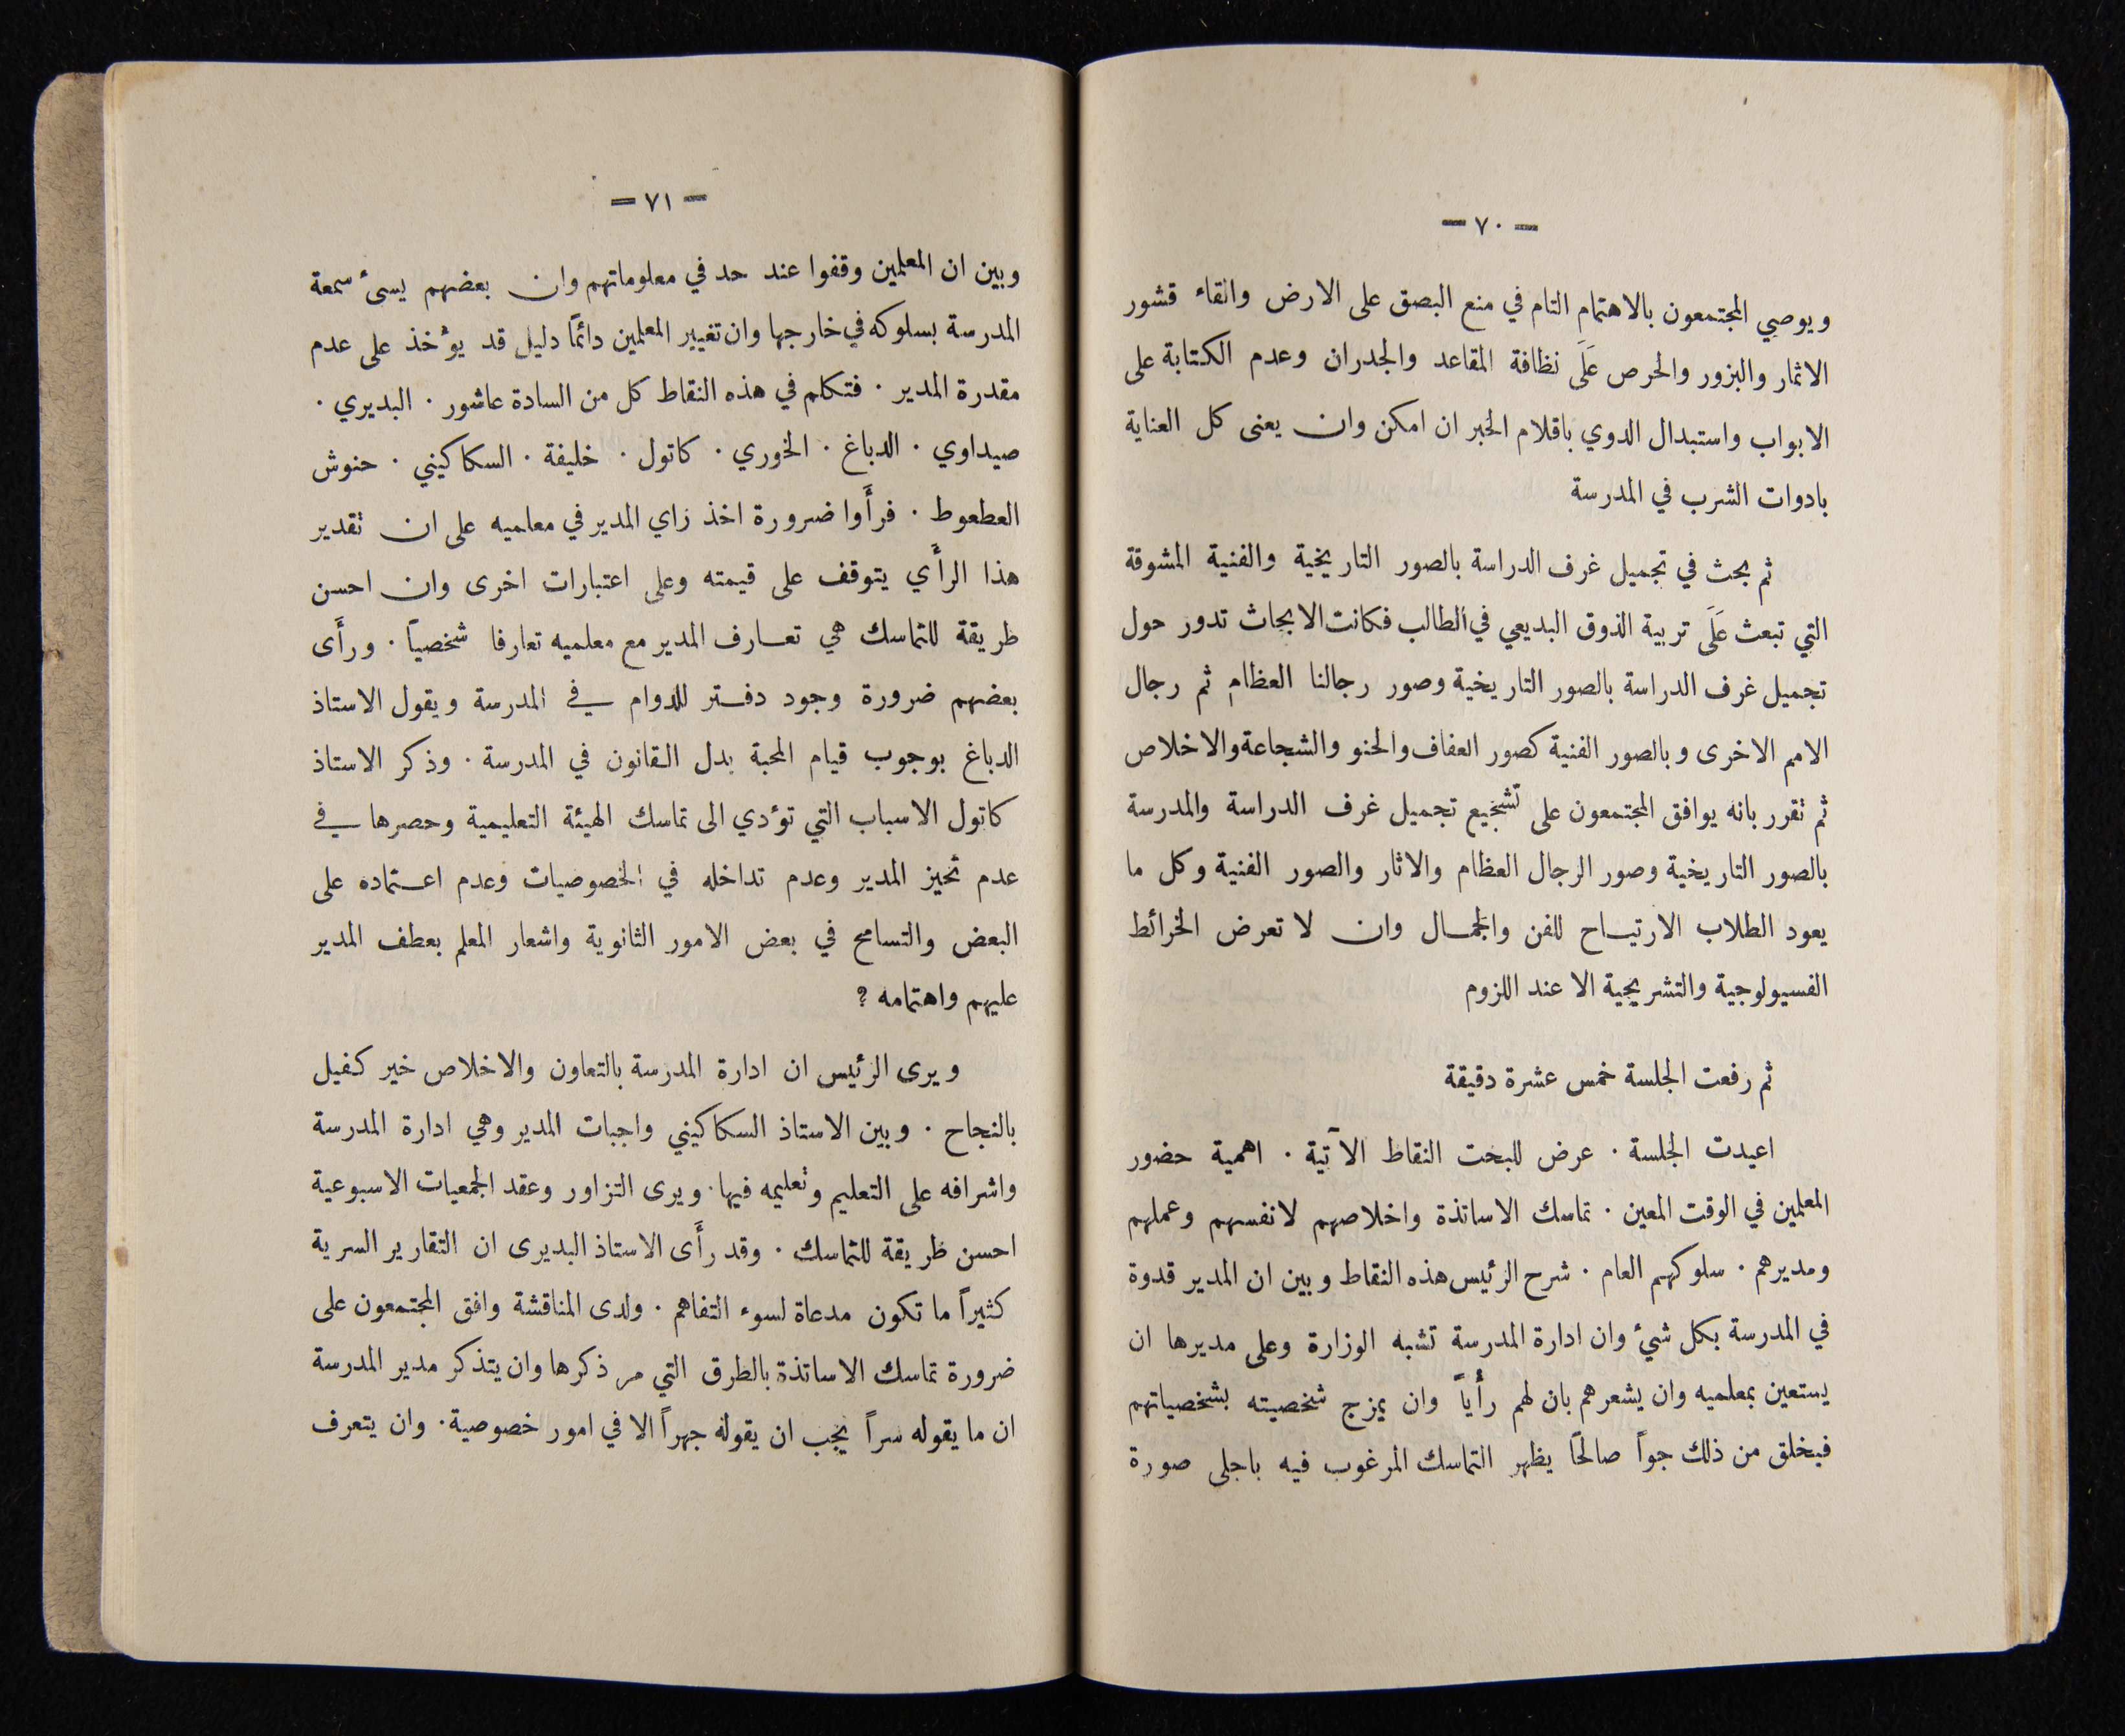 — ٧٠ —
ويوصي المجتمعون بالاهتمام التام في منع البصق على الارض والقاء قشور
الاثمار والبزور والحرص عَلَى نظافة المقاعد والجدران وعدم الكتابة على
الابواب واستبدال الدوي باقلام الحبر ان امكن وان يعنى كل العناية
بادوات الشرب في المدرسة
ثم بحث في تجميل غرف الدراسة بالصور التاريخية والفنية المشوقة
التي تبعث عَلَى تربية الذوق البديعي في الطالب فكانت الابحاث تدور حول
تجميل غرف الدراسة بالصور التاريخية وصور رجالنا العظام ثم رجال
الامم الاخرى وبالصور الفنية كصور العفاف والحنو والشجاعة والاخلاص
ثم تقرر بانه يوافق المجتمعون على تشجيع تجميل غرف الدراسة والمدرسة
بالصور التاريخية وصور الرجال العظام والاثار والصور الفنية وكل ما
يعود الطلاب الارتياح للفن والجمال وان لا تعرض الخرائط
الفسيولوجية والتشريحية الا عند اللزوم
ثم رفعت الجلسة خمس عشرة دقيقة
اعيدت الجلسة . عرض للبحث النقاط الآتية . اهمية حضور
المعلمين في الوقت المعين . تماسك الاساتذة واخلاصهم لانفسهم وعملهم
ومديرهم . سلوكهم العام . شرح الرئيس هذه النقاط وبين ان المدير قدوة
في المدرسة بكل شيء وان ادارة المدرسة تشبه الوزارة وعلى مديرها ان
يستعين بمعلميه وان يشعرهم بان لهم رأياً وان يمزج شخصيته بشخصياتهم
فيخلق من ذلك جواً صالحًا يظهر التماسك المرغوب فيه باجلى صورة
— ٧١ —
وبين ان المعلمين وقفوا عند حد في معلوماتهم وان بعضهم يسئ سمعة
المدرسة بسلوكه في خارجها وان تغيير المعلمين دائمًا دليل قد يؤخذ على عدم
مقدرة المدير . فتكلم في هذه النقاط كل من السادة عاشور . البديري .
صيداوي . الدباغ . الخوري . كاتول . خليفة . السكاكيني . حنوش
العطعوط . فرأَوا ضرورة اخذ راي المدير في معلميه على ان تقدير
هذا الرأَي يتوقف على قيمته وعلى اعتبارات اخرى وان احسن
طريقة للتماسك هي تعارف المدير مع معلميه تعارفا شخصيًا . ورأَى
بعضهم ضرورة وجود دفتر للدوام في المدرسة ويقول الاستاذ
الدباغ بوجوب قيام المحبة بدل القانون في المدرسة . وذكر الاستاذ
كاتول الاسباب التي تؤدي الى تماسك الهيئة التعليمية وحصرها في
عدم تحيز المدير وعدم تداخله في الخصوصيات وعدم اعتماده على
البعض والتسامح في بعض الامور الثانوية واشعار المعلم بعطف المدير
عليهم واهتمامه ؟
ويرى الرئيس ان ادارة المدرسة بالتعاون والاخلاص خير كفيل
بالنجاح . وبين الاستاذ السكاكيني واجبات المدير وهي ادارة المدرسة
واشرافه على التعليم وتعليمه فيها . ويرى التزاور وعقد الجمعيات الاسبوعية
احسن طريقة للتماسك . وقد رأَى الاستاذ البديرى ان التقارير السرية
كثيراً ما تكون مدعاة لسوء التفاهم . ولدى المناقشة وافق المجتمعون على
ضرورة تماسك الاساتذة بالطرق التي مر ذكرها وان يتذكر مدير المدرسة
ان ما يقوله سراً يجب ان يقوله جهراً الا في امور خصوصية . وان يتعرف